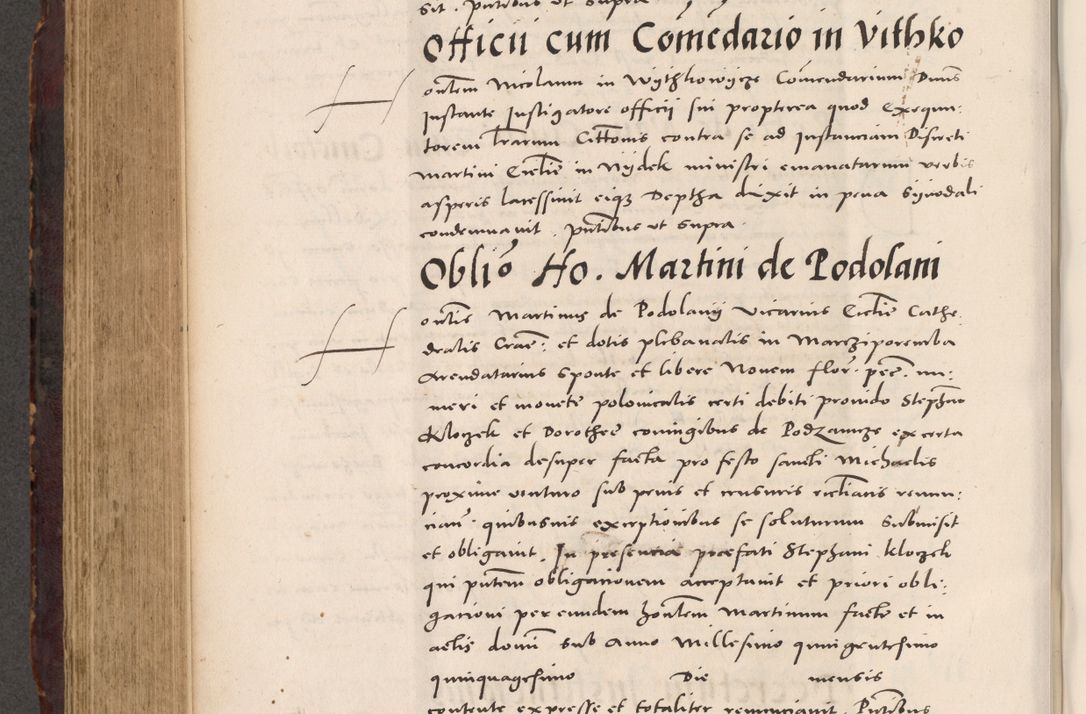 sit . pntibus ut supra
Officii cum Comedario in Vithko
ontem Nicolaum in Wythkowycze Comendarium Dnus
Instante Instigatore officii sui propterea quod Exequu:
torem lrarum Cittonis contra se ad Instanciam Discreti
Martini Cielie in Nydek ministri emanatarum verbis
asperis lacessiuit eiqz Deptha duxit in pena Synodali
condemnauit . pntibus ut supra .
Oblio Ho . Martini de Podolani
ontis Martinus de Podolanii vicarius Ecclie Cathe.
dralis Crac: et dotis plebanalis in Marcziporemba
Arendatarius sponte et libere Novem flor. pec. nu:
meri et monete polonicalis certi debiti provido Stephano
Kloczek et Dorothee coniugibus de Podzamcze ex certa
concordia desuper facta pro festo sancti Michaelis
proxime venturo sub penis et censuris ecclianis renun:
cian. quibusuis exceptionibus se soluturum submisit
et obligauit. In presencia praefati Stephani Kloczek
qui pntem obligacionem acceptauit et priori obli:
gacioni per eundem hontem Martinum facte et in
actis domi sub Anno Millesimo quingentesimo
quinquagesimo Die mensis
contente expresse et totaliter renunciauit . Pntibus